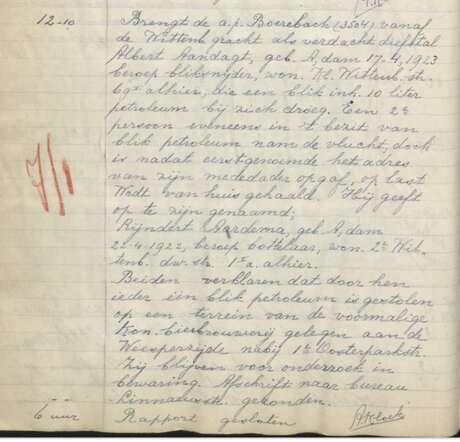 12-10 Brengt de a.p. Boereback (3504) vanaf
de Wittenb. gracht als verdacht diefstal
Albert Aandagt, geb. A,dam 17-4,1923
beroep bliksnyder, won. Kl. Wittenb. str.
69² alhier, die een blik inh. 10 liter
petroleum bij zich droeg. Een 2e
persoon eveneens in 't bezit van
blik petroleum nam de vlucht, doch
is nadat eerstgenoemde het adres
van zijn mededader opgaf, op last
Wedt van huis gehaald. Hij geeft
op te zijn genaamd;
Rijndert Aardema, geb A,dam
22-4-1922, beroep bottelaar, won. 2e Wit-
tenb. dw. str. 1 a. alhier.
Beiden verklaren dat door hen
ieder een blik petroleum is gestolen
op een terrein van de voormalige
Kon. bierbrouwerij gelegen aan de
Weesperzijde nabij 1e Oosterparkstr.
Zij blijven voor onderzoek in
bewaring. Afschrift naar bureau
Linnaeusstr. gezonden.
6 uur Rapport gesloten